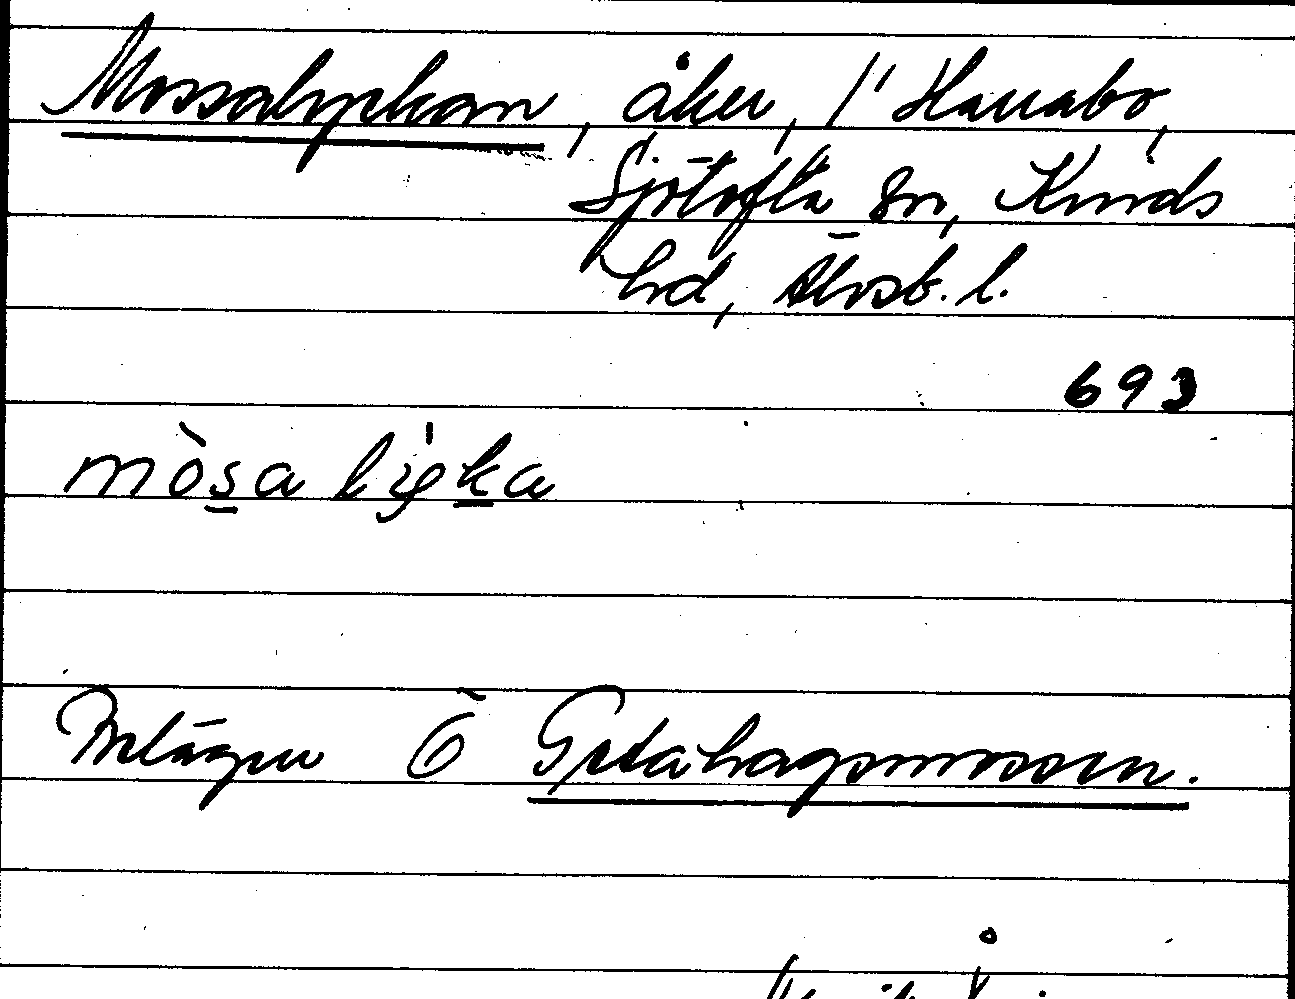 Mossalyckan, åker, 1' Harrabo,
Sjötofta sn, Kinds
hd, Älvsb. l.
693
mòsa lýcka
Belägen Ö Getahagsmossen.